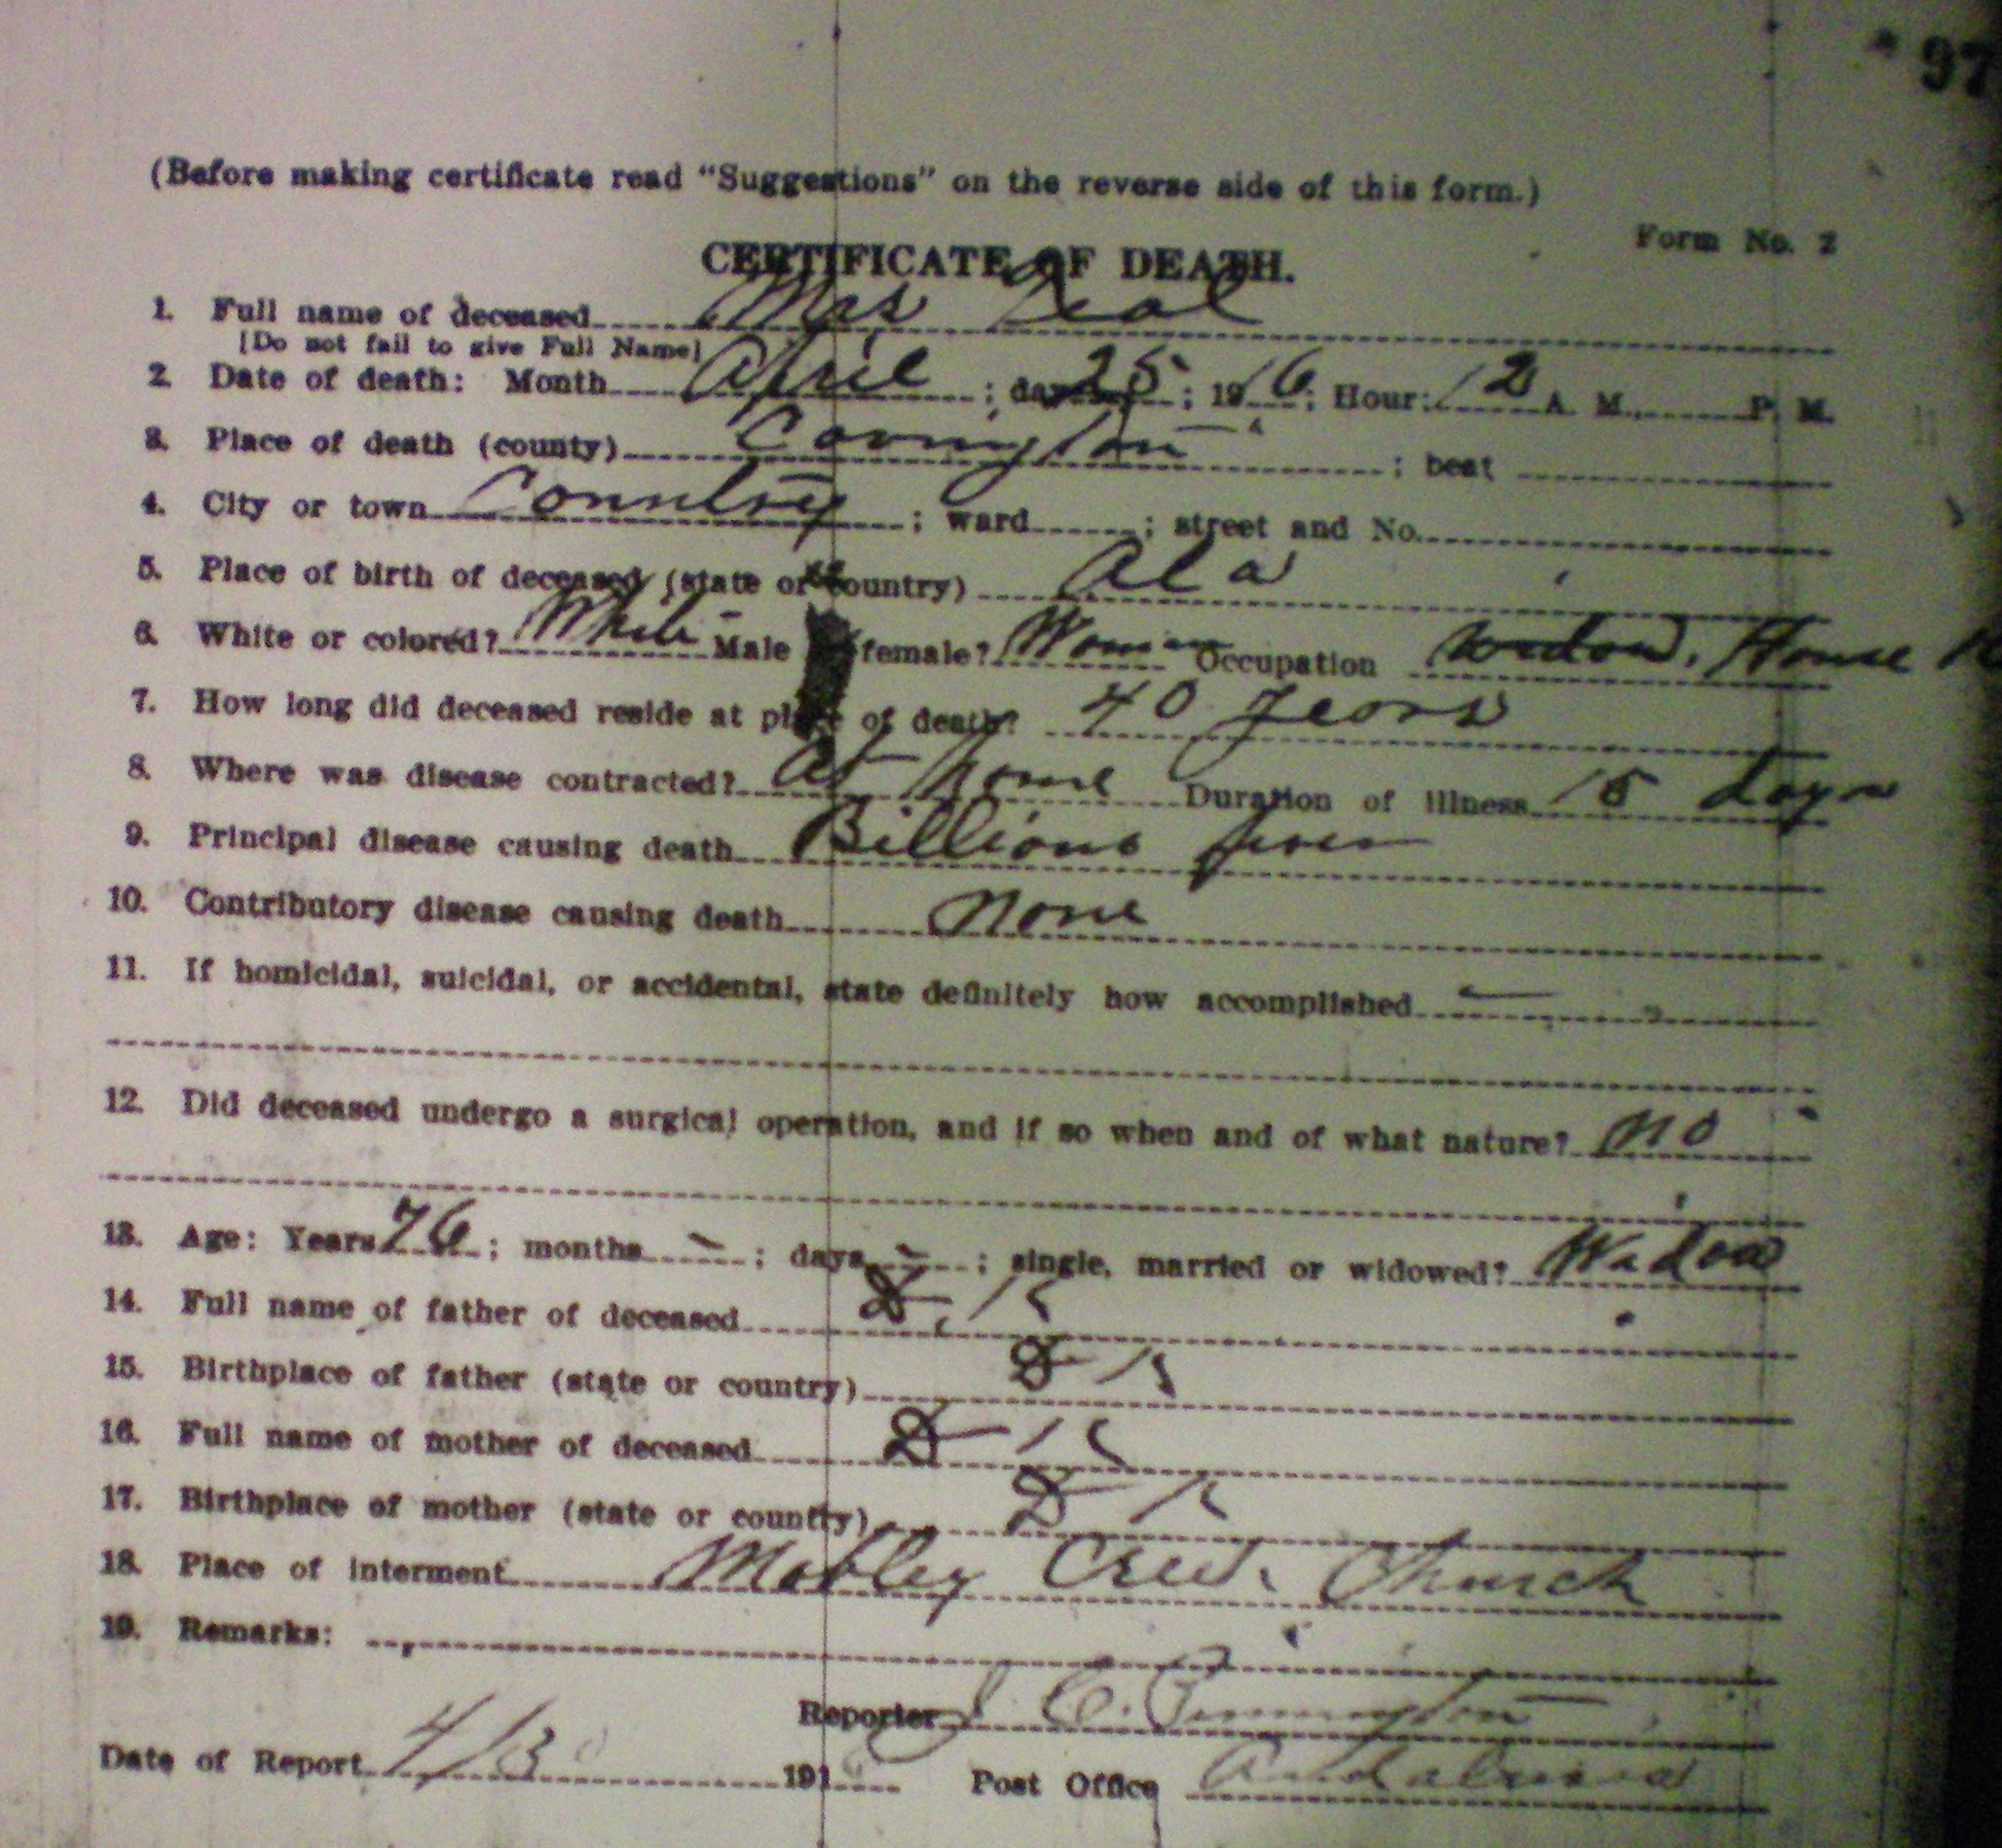 97
(Before making certificate read "Suggestions" on the reverse side of this form.)
Form No. 2
CERTIFICATE OF DEATH.
1. Full name of deceased Mrs Deal
[Do not fail to give Full Name]
2. Date of death: Month April ; day 25 ; 1916 ; Hour: 12 A. M. P. M.
3. Place of death (county) Covington ; beat
4. City or town Country ; ward ; street and No.
5. Place of birth of deceased (state or country) Ala
6. White or colored? White Male or female? Woman Occupation Widow. House
7. How long did deceased reside at place of death? 40 years
8. Where was disease contracted? At home Duration of illness 15 days
9. Principal disease causing death Billious fever
10. Contributory disease causing death None
11. If homicidal, suicidal, or accidental, state definitely how accomplished —
12. Did deceased undergo a surgical operation, and if so when and of what nature? no
13. Age: Years 76 ; months - ; days - ; single, married or widowed? Widow
14. Full name of father of deceased D. K
15. Birthplace of father (state or country) D K
16. Full name of mother of deceased D K
17. Birthplace of mother (state or country) D K
18. Place of interment Mobley Creek Church
19. Remarks:
Reporter J C. Pennington
Date of Report 4/30 191 Post Office Andalusia